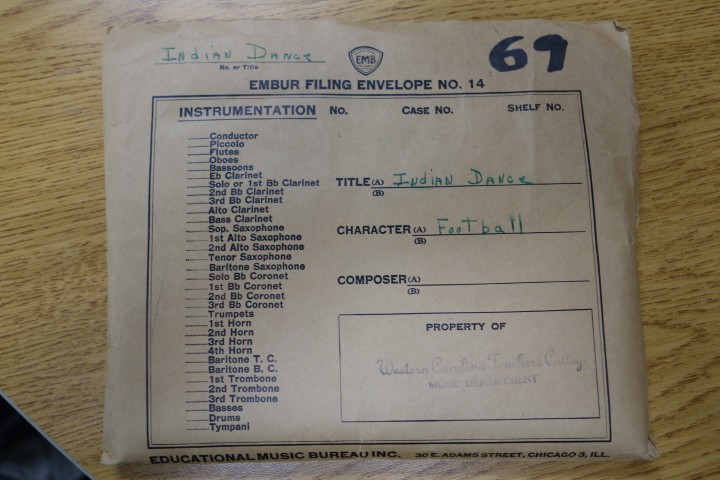 Indian Dance
No. or Title
EMB
69
EMBUR FILING ENVELOPE NO. 14
INSTRUMENTATION NO. CASE NO. SHELF NO.
Conductor
Piccolo
Flutes
Oboes
Bassoons
Eb Clarinet
Solo or 1st Bb Clarinet
2nd Bb Clarinet
3rd Bb Clarinet
Alto Clarinet
Bass Clarinet
Sop. Saxophone
1st Alto Saxophone
2nd Alto Saxophone
Tenor Saxophone
Baritone Saxophone
Solo Bb Coronet
1st Bb Coronet
2nd Bb Coronet
3rd Bb Coronet
Trumpets
1st Horn
2nd Horn
3rd Horn
4th Horn
Baritone T. C.
Baritone B. C.
1st Trombone
2nd Trombone
3rd Trombone
Basses
Drums
Tympani
TITLE (A) Indian Dance
(B)
CHARACTER (A) Football
(B)
COMPOSER (A)
(B)
PROPERTY OF
Western Carolina Teachers College
MUSIC DEPARTMENT
EDUCATIONAL MUSIC BUREAU INC. 30 E. ADAMS STREET, CHICAGO 3, ILL.